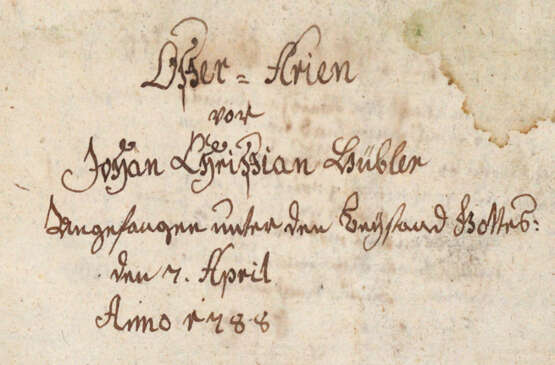 Oster = Arien
vor
Johan Christian Hübler
Angefangen unter den Beÿstand Gottes:
den 7. April
Anno 1788